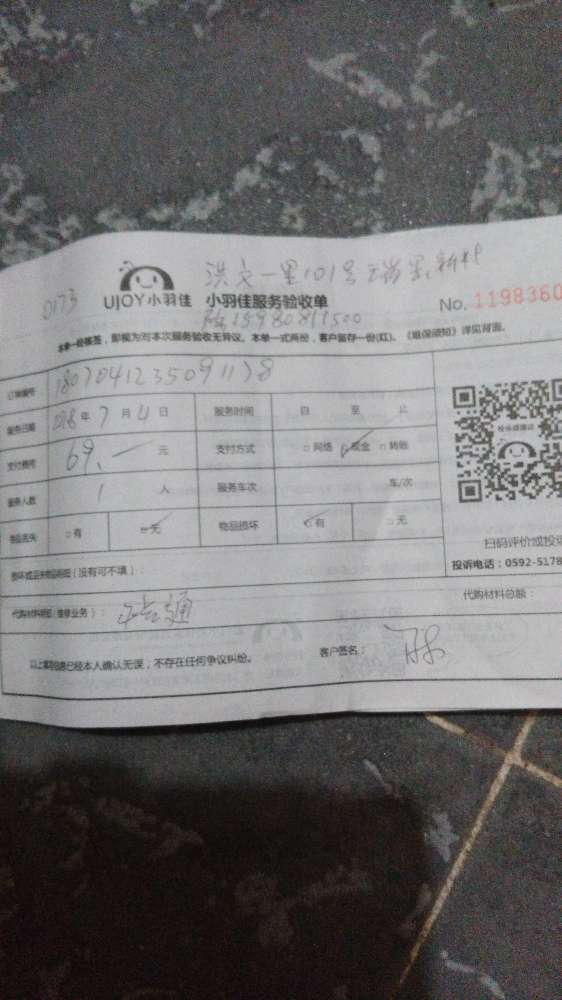 洪文一里101号
0173 UJOY小羽佳 小羽佳服务验收单 No. 1198360
陈15980811500
本单一经签签，即视为对本次服务验收无异议。本单一式两份，客户留存一份(红)。《维保须知》详见背面。
订单编号 18070412350911
服务日期 2018年7月4日 服务时间 自 至 止
支付费用 69.一 元 支付方式 □网络 ☑现金 □转账
服务人数 1 人 服务车次 车/次
物品丢失 □有 ☑无 物品损坏 ☑有 □无
扫码评价或投
投诉电话：0592-5178
损坏或丢失物品明细（没有可不填）：
代购材料明细(维修业务)： 代购材料总额：
以上填写信息已经本人确认无误，不存在任何争议纠纷。 客户签名：